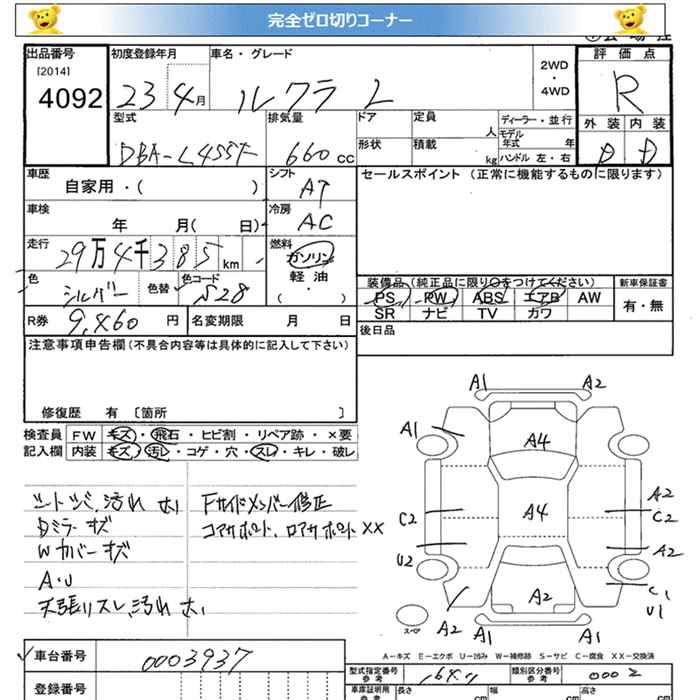 完全ゼロ切りコーナー
出品番号 初度登録年月 車名・グレード
[2014]
4092
23 4月 ルクラ L
2WD・4WD
評価点
R
型式 排気量 ドア 定員 人 ディーラー・並行
モデル年式 年
DBA-L455F 660 CC
形状 積載 kg ハンドル 左・右
外装 内装
D D
車歴 自家用・( ) シフト AT
セールスポイント (正常に機能するものに限ります)
車検 年 月( 日) 冷房 AC
走行 29万4千385 km 燃料 ガソリン
軽油・( )
色 シルバー 色替 色コード S28
装備品 (純正品に限り〇をつけてください) 新車保証書
PS PW ABS エアB AW 有・無
SR ナビ TV カワ
R券 9,460 円 名変期限 月 日 後日品
注意事項申告欄 (不具合内容等は具体的に記入して下さい)
修復歴 有 〔箇所 〕
検査員 FW キズ・飛石・ヒビ割・リペア跡・×要
記入欄 内装 キズ・汚レ・コゲ・穴・スレ・キレ・破レ
A1 A2
A1 A4
A4 A2
C2 C2
A2
U2
A2 C1
U1
A2 A1 A1
スペア
Fサイドメンバー修正
コアサポート、ロアサポートXX
Dミラーキズ
Wカバーキズ
A・U
A-キズ E-エクボ U-凹み W-補修跡 S-サビ C-腐食 XX-交換済
車台番号 0003937
登録番号
型式指定番号 参考 類別区分番号 参考 0002
車庫証明用 参考 長さ cm 幅 cm 高さ cm